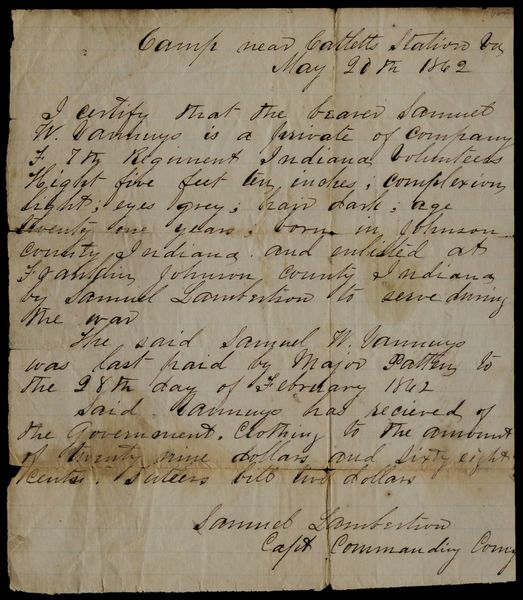 Camp near Catletts Station Va
May 20th 1862
I certify that the bearer Samuel
W. Vannuys is a private of company
F 7th Regiment Indiana Volunteers
Hight five feet ten inches; complexion
light; eyes grey; hair dark; age
twenty one years; born in Johnson
county Indiana and enlisted at
Franklin Johnson county Indiana
by Samuel Lambertson to serve during
the war
The said Samuel W. Vannuys
was last paid by Major Patten to
the 28th day of February 1862
Said Vannuys has recieved of
the Government. Clothing to the amount
of twenty nine dollars and Sixty eight
cents. Sutlers bill two dollars
Samuel Lambertson
Capt Commanding Comp